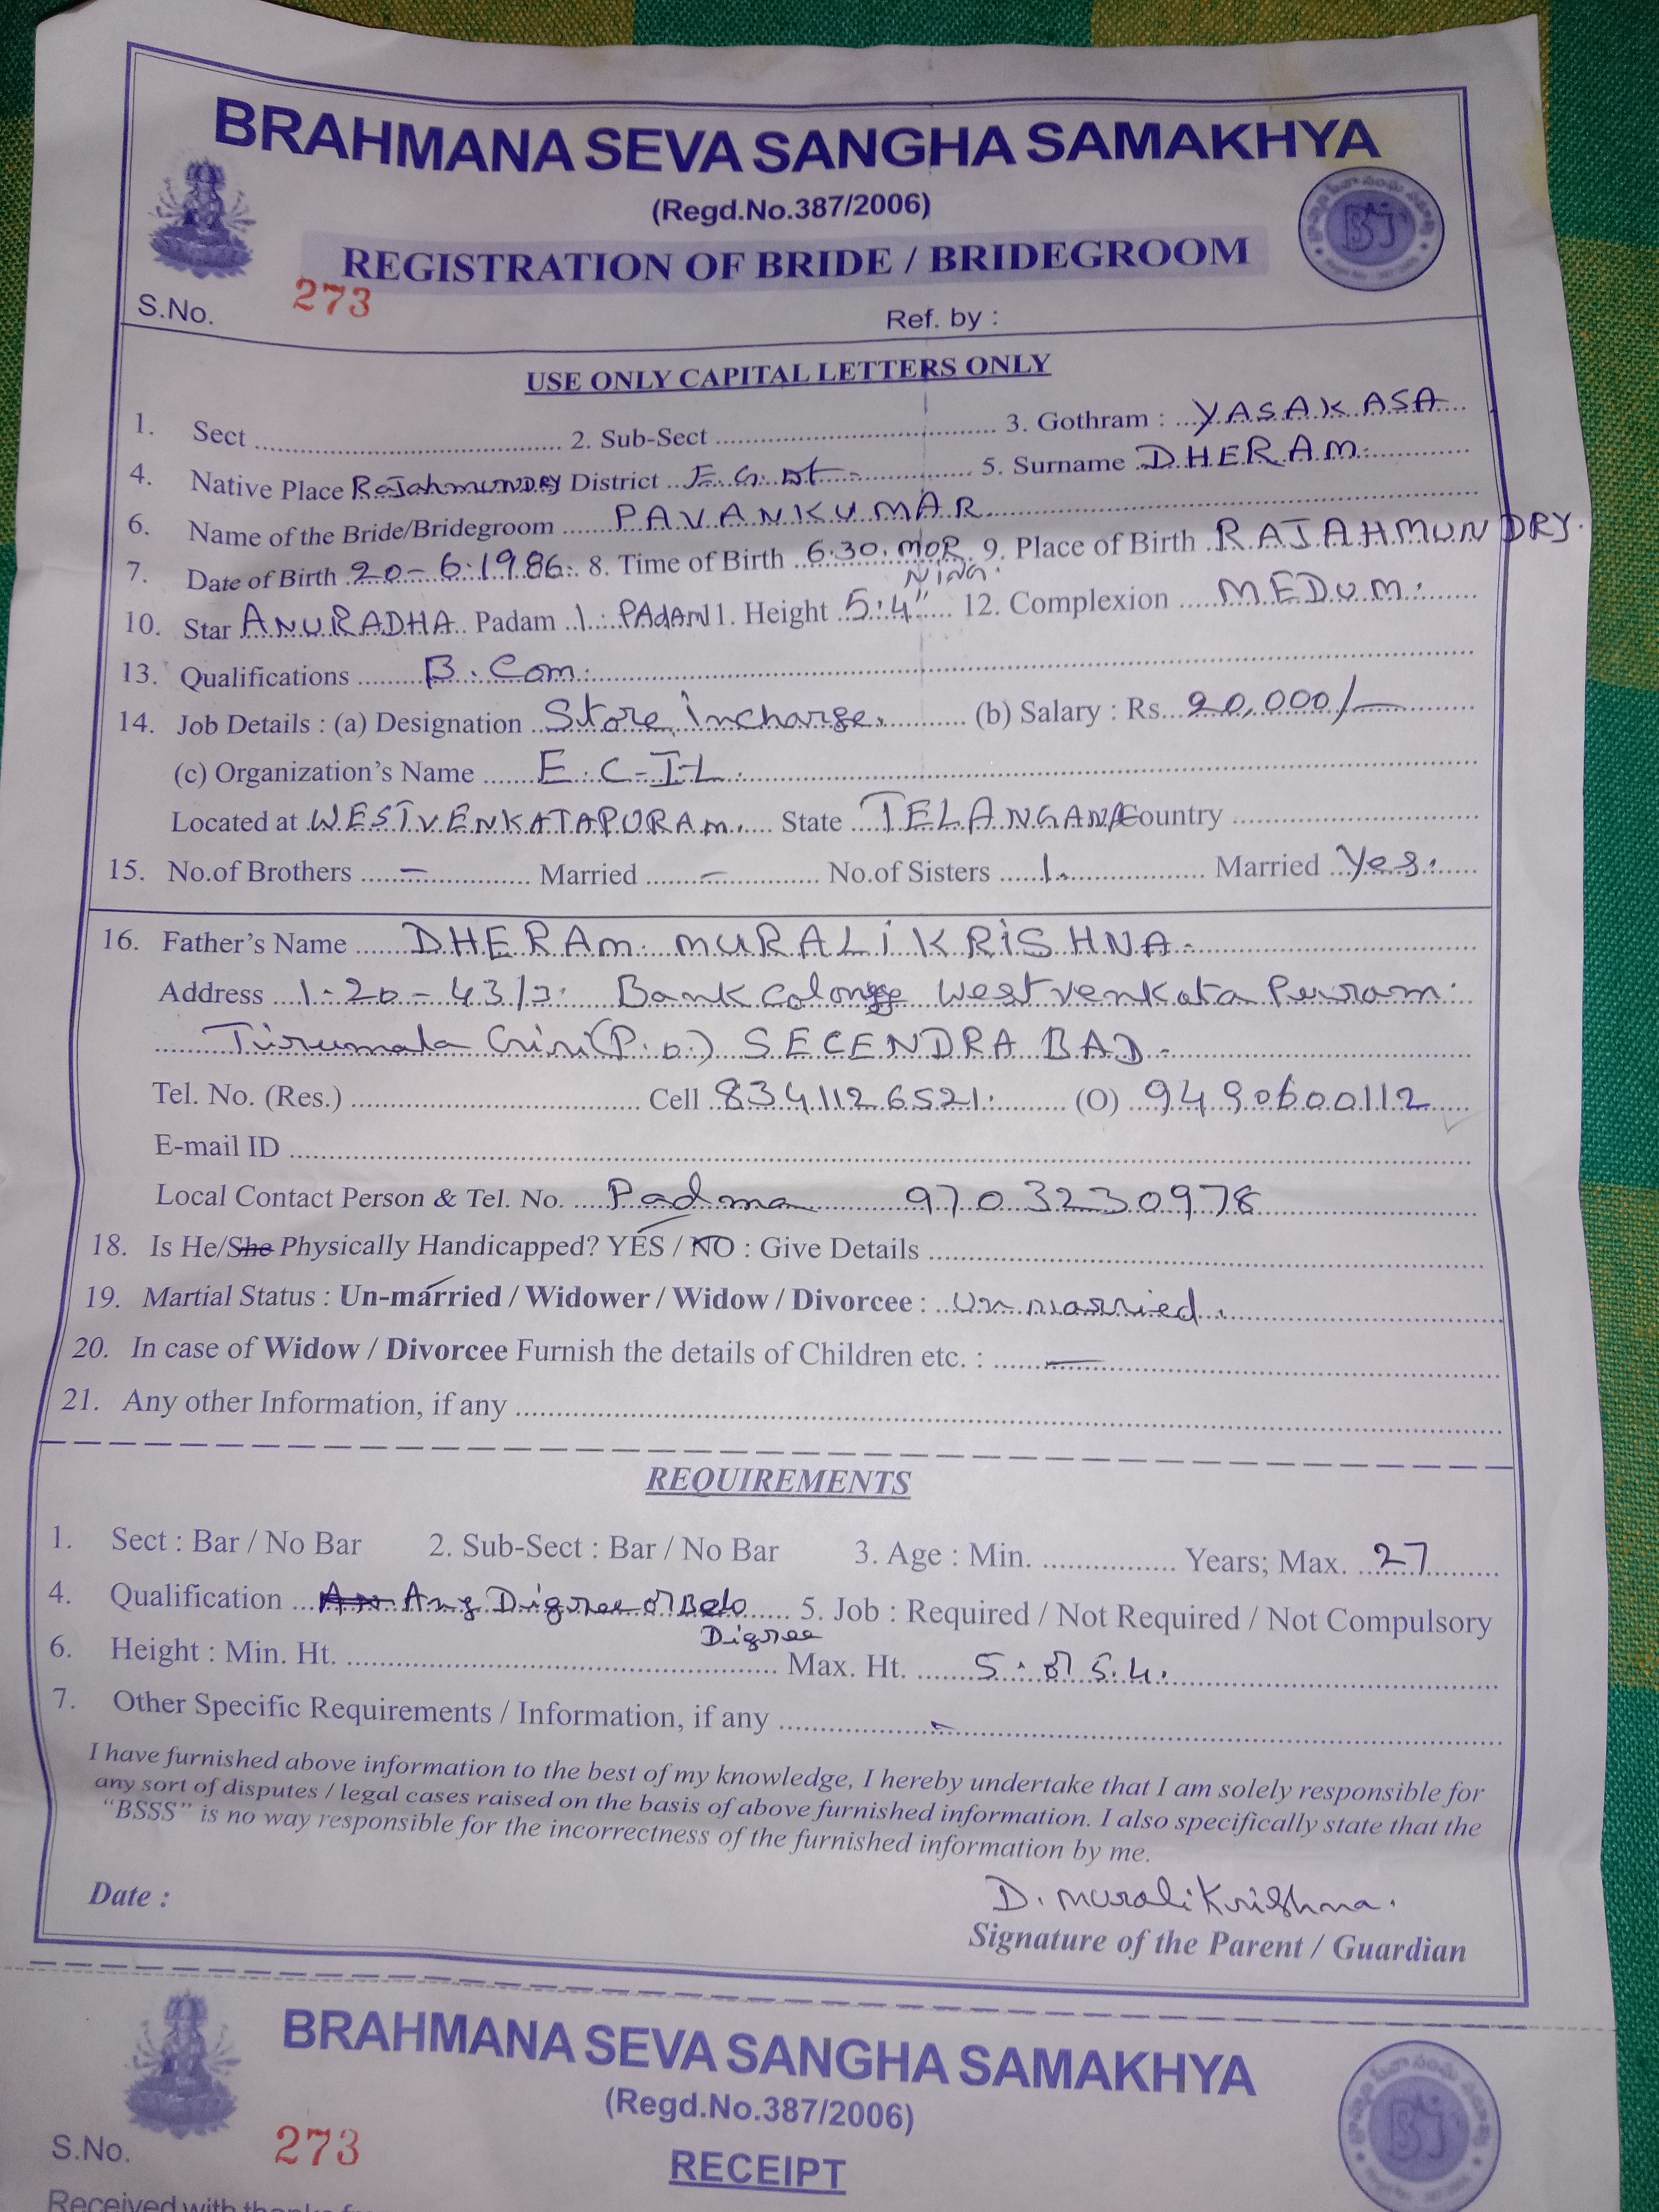 BRAHMANA SEVA SANGHA SAMAKHYA
(Regd.No.387/2006)
REGISTRATION OF BRIDE / BRIDEGROOM
S.No. 273 Ref. by :
USE ONLY CAPITAL LETTERS ONLY
1. Sect 2. Sub-Sect 3. Gothram : YASAKASA
4. Native Place RaJahmuNDRY District E.G.Dt 5. Surname DHERAM
6. Name of the Bride/Bridegroom PAVANKUMAR
7. Date of Birth 20-6-1986 8. Time of Birth 6.30. MOR NING 9. Place of Birth RAJAHMUNDRY
10. Star ANURADHA Padam 1. PAdAM 11. Height 5.4" 12. Complexion MEDUM
13. Qualifications B.Com
14. Job Details : (a) Designation Store incharge. (b) Salary : Rs. 20,000/-
(c) Organization's Name E.C-I-L
Located at WESTVENKATAPURAM. State TELANGANA Country
15. No.of Brothers - Married - No.of Sisters 1. Married Yes.
16. Father's Name DHERAM MURALiKRiSHNA
Address 1-20-43/ Bank West venkata Puram
Tirumala Giri (P.O.) SECENDRA BAD
Tel. No. (Res.) Cell 8341126521. (O) 9490600112
E-mail ID
Local Contact Person & Tel. No. Padma 9703230978
18. Is He/She Physically Handicapped? YES / NO : Give Details
19. Martial Status : Un-married / Widower / Widow / Divorcee : Un married.
20. In case of Widow / Divorcee Furnish the details of Children etc. : —
21. Any other Information, if any
REQUIREMENTS
1. Sect : Bar / No Bar 2. Sub-Sect : Bar / No Bar 3. Age : Min. Years; Max. 27
4. Qualification Any Digree or Belo 5. Job : Required / Not Required / Not Compulsory
Digree
6. Height : Min. Ht. Max. Ht. 5. or 5.4.
7. Other Specific Requirements / Information, if any
I have furnished above information to the best of my knowledge, I hereby undertake that I am solely responsible for
any sort of disputes / legal cases raised on the basis of above furnished information. I also specifically state that the
"BSSS" is no way responsible for the incorrectness of the furnished information by me.
D. muraliKrishna.
Date :
Signature of the Parent / Guardian
BRAHMANA SEVA SANGHA SAMAKHYA
(Regd.No.387/2006)
S.No. 273
RECEIPT
Received with thanks